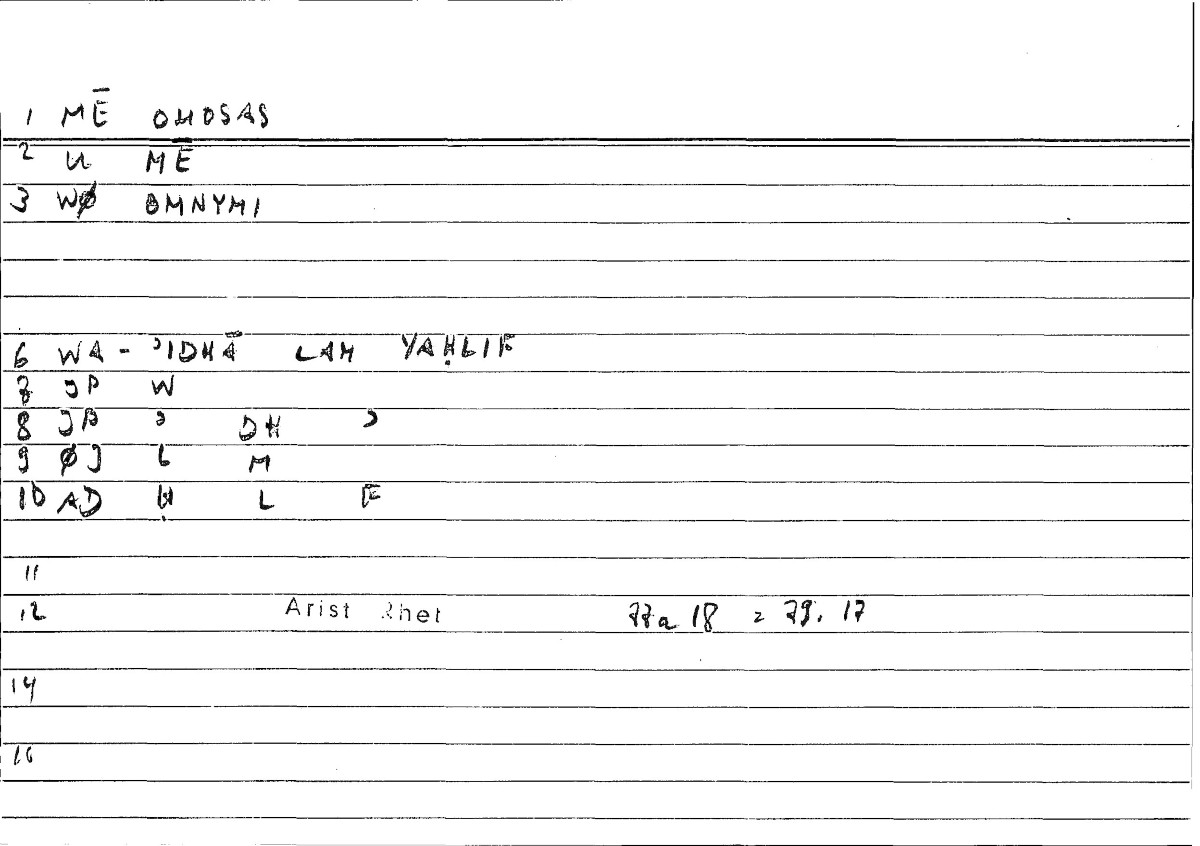 1 MĒ OMOSAS
2 U MĒ
3 WØ OMNYMI
6 WA - ʾIDHĀ LAM YAḤLIF
7 JP W
8 JP ʾ DH ʾ
9 ØJ L M
10 AD Ḥ L F
11
12 Arist Rhet 77a 18 = 79. 17
14
16